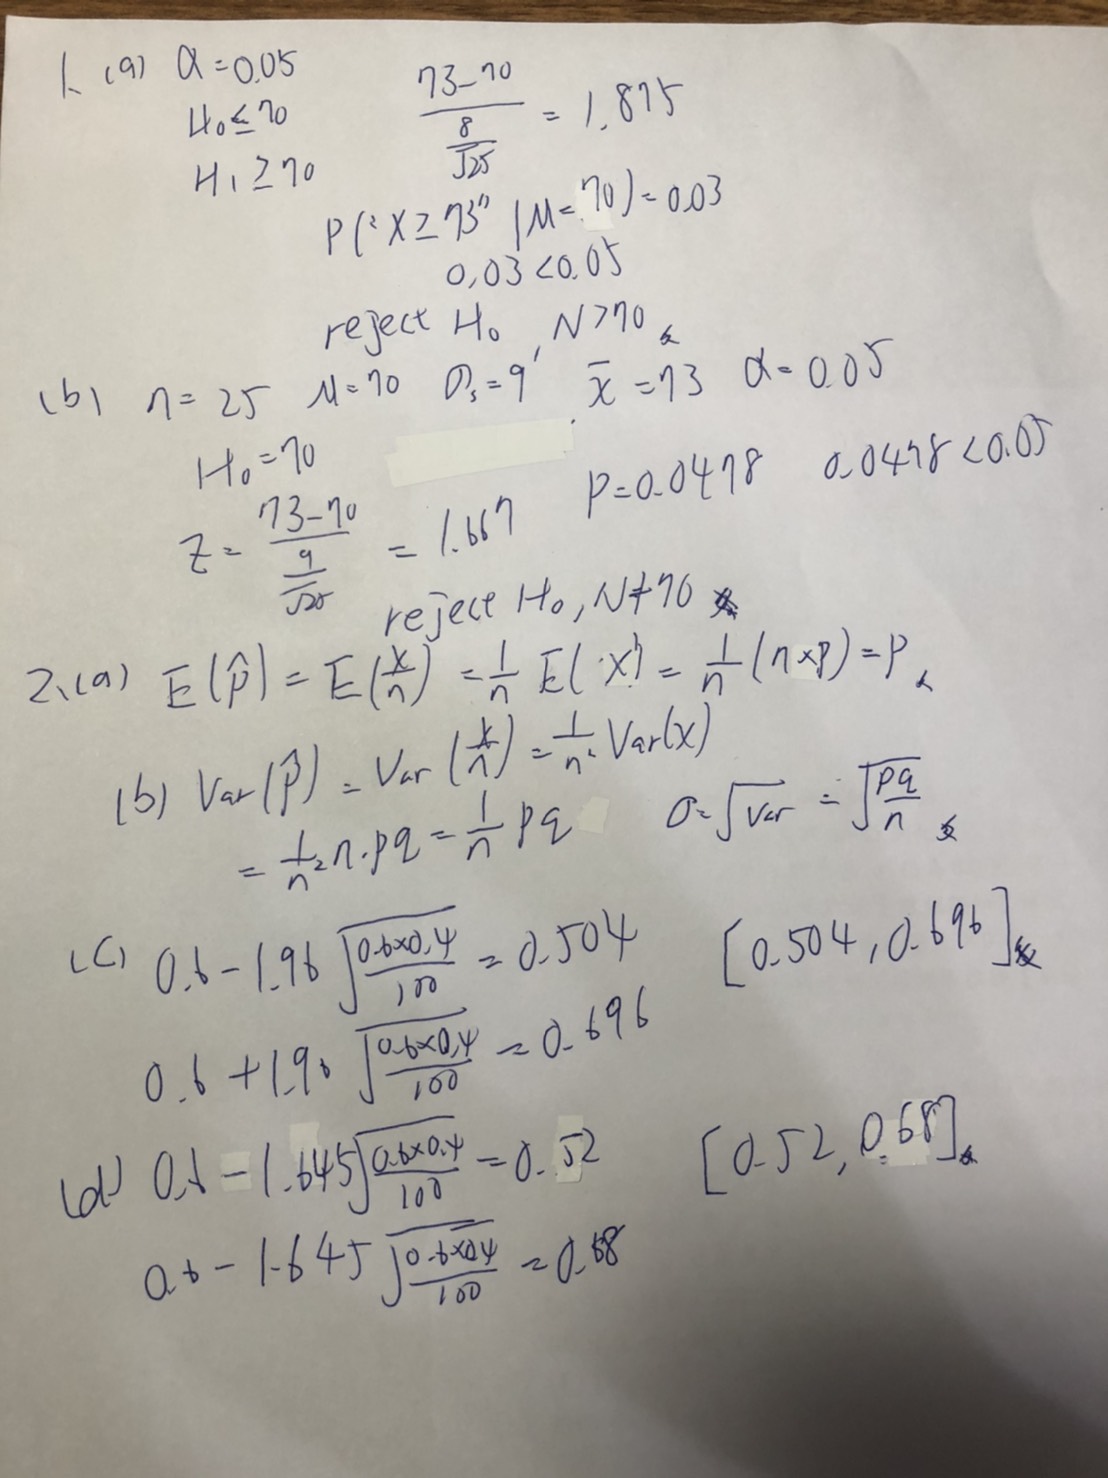 1. (a) α=0.05
H₀≤70
H₁≥70
(73-70)/(8/√25) = 1.875
P("X≥73" | M=70)=0.03
0.03<0.05
reject H₀, N>70
(b) n=25 M=70 σs=9 x̄=73 α=0.05
H₀=70
Z= (73-70)/(9/√25) = 1.667 P=0.0478 0.0478<0.05
reject H₀, N≠70
2. (a) E(p̂) = E(x/n) = 1/n E(X) = 1/n (n×p) = P
(b) Var(p̂) = Var(x/n) = 1/n² Var(x)
= 1/n² n·pq = 1/n pq σ=√Var = √(pq/n)
(c) 0.6-1.96 √(0.6×0.4/100) = 0.504 [0.504, 0.696]
0.6+1.96 √(0.6×0.4/100) = 0.696
(d) 0.6-1.645 √(0.6×0.4/100) = 0.52 [0.52, 0.68]
0.6-1.645 √(0.6×0.4/100) = 0.68